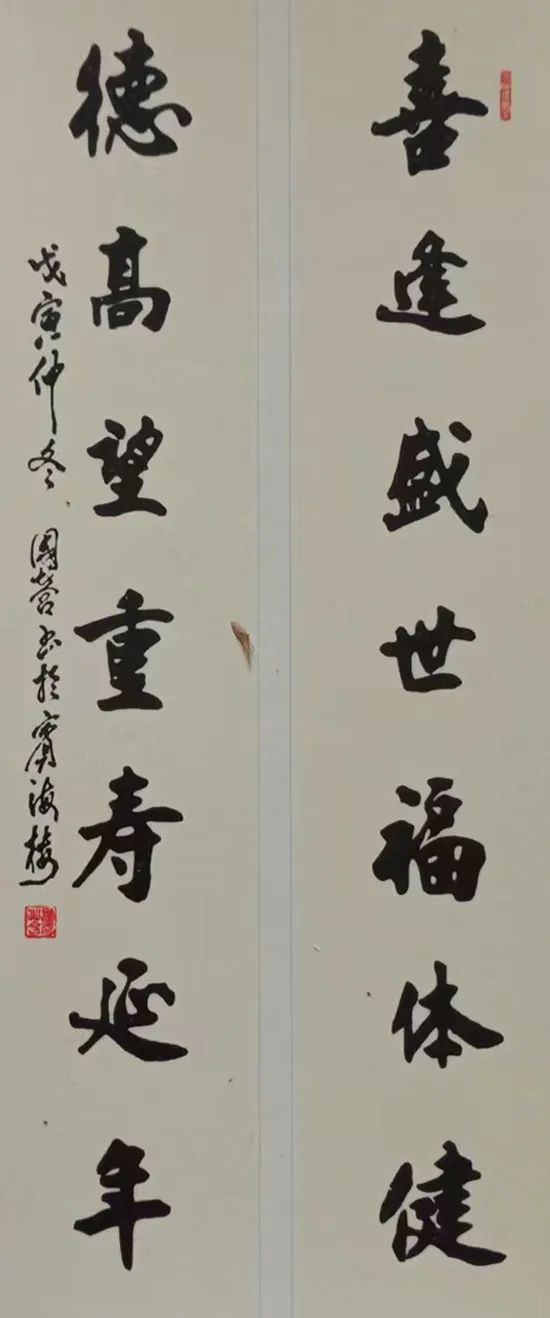 喜逢盛世福体健
德高望重寿延年
戊寅仲冬 国营书於宾海楼